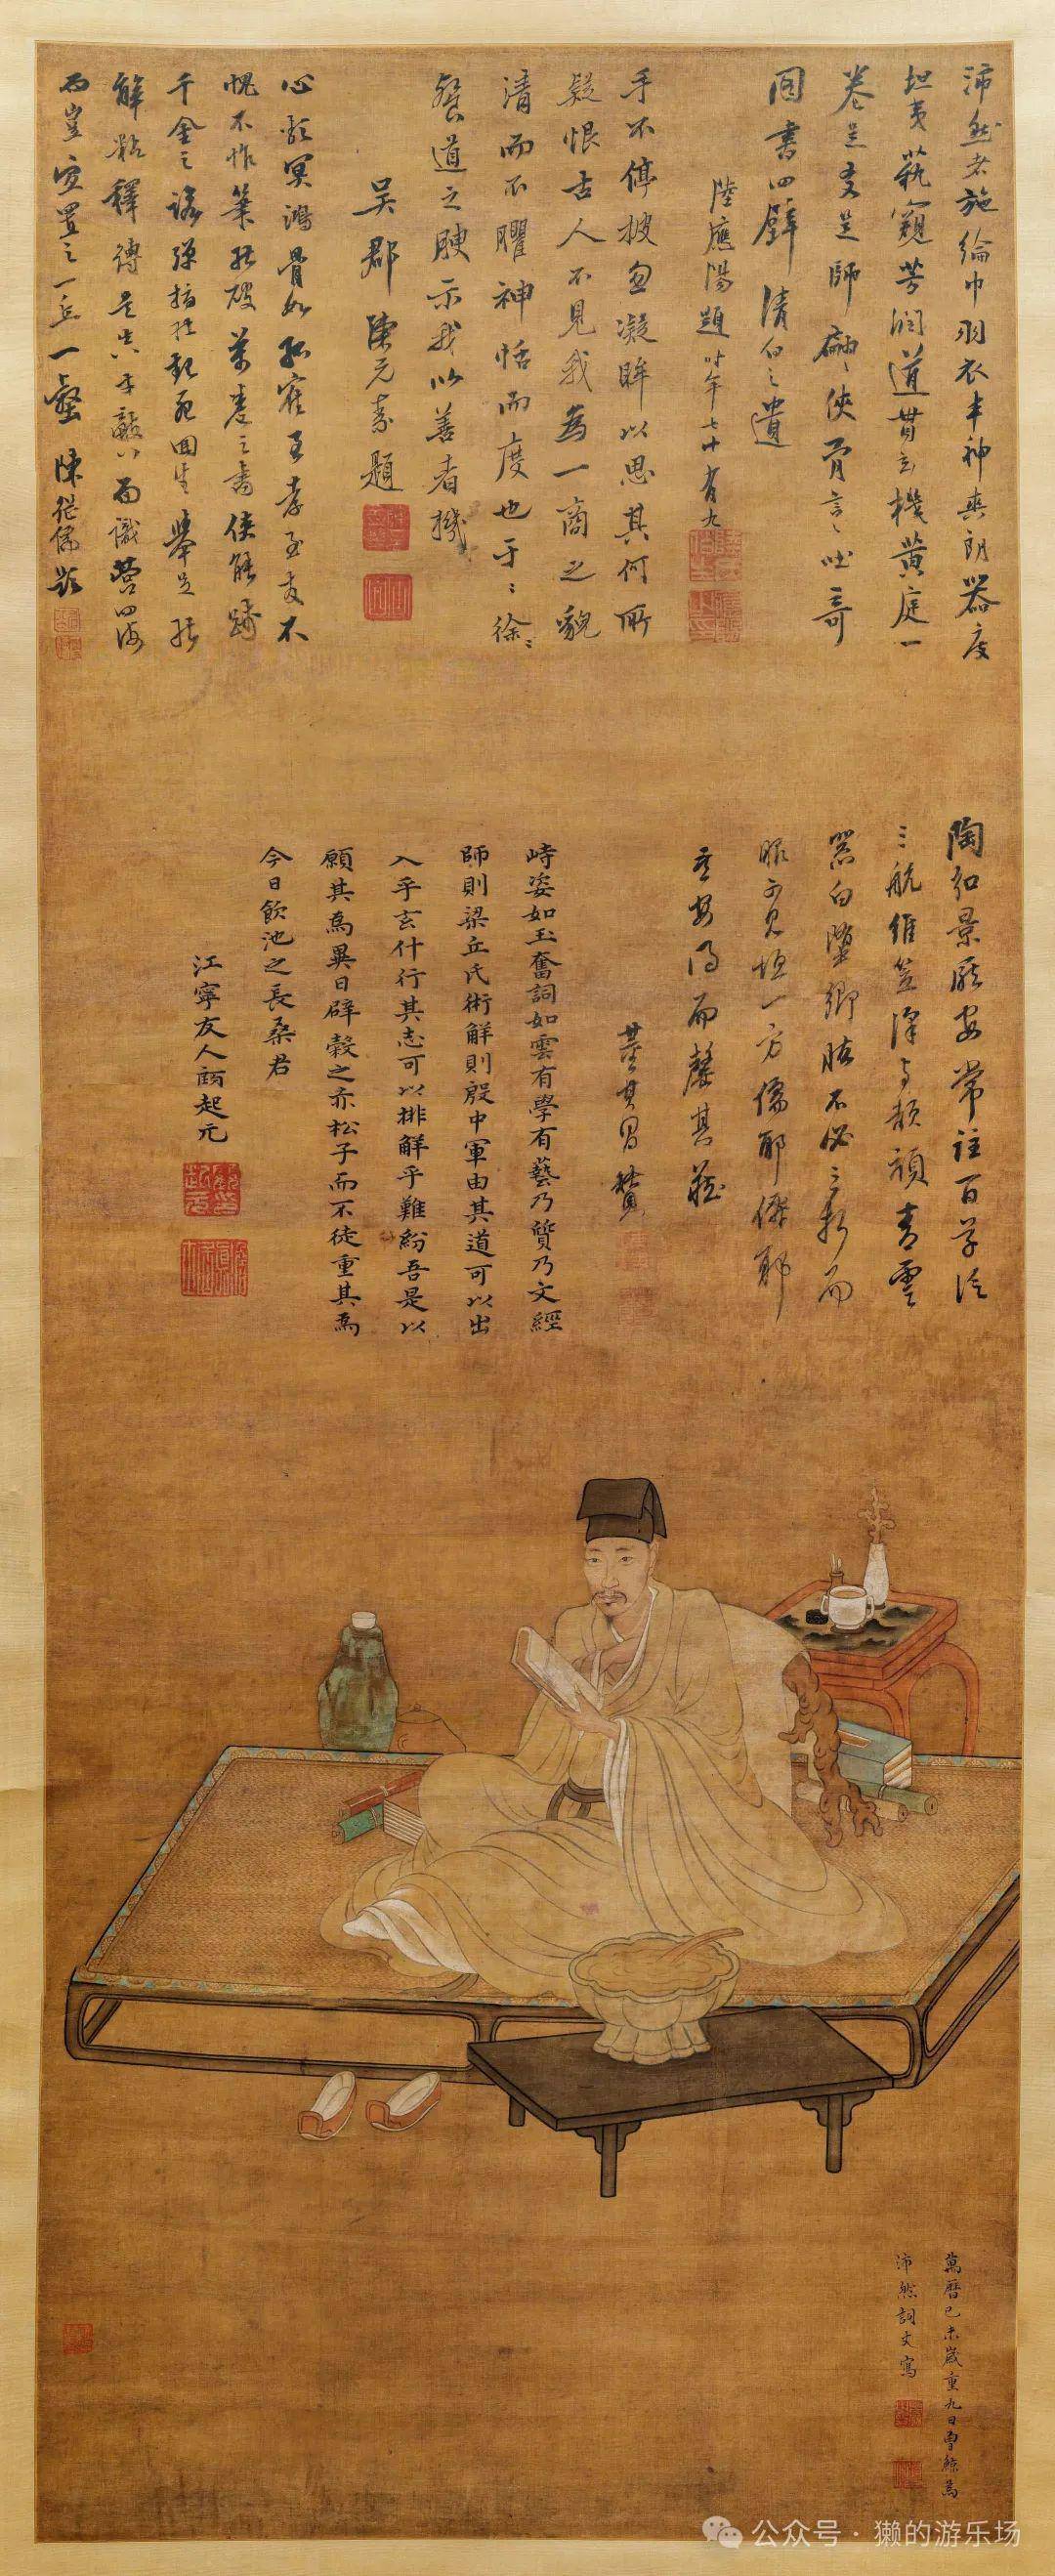 沛然者施綸巾羽衣丰神爽朗器度
坦夷藝窺芳潤道貫玄機黃庭一
卷是友是師翩翩俠骨言言吐奇
圖書四壁清白之遺
陸應陽題時年七十有九
手不停披忽凝眸以思其何所
疑恨古人不見我為一商之貌
清而不臞神恬而度也于于徐徐
餐道之腴示我以善者機
吳郡陳元素題
心郭冥鴻骨如孤寉事孝至友不
愧不怍筆能破萬卷之書俠能踐
千金之諾彈指於起死回生舉足能
解粘釋縛是其年少而識營四海
而豈宜置之一丘一壑 陳繼儒題
陶弘景願安常註百草泛
三航維笠澤與頡頏青雲
器白墮鄉肱不必三折而
眼可見垣一方儒耶儒耶
吾安得而麗其藏
董其昌贊
峙姿如玉奮詞如雲有學有藝乃質乃文經
師則梁丘氏術解則殷中軍由其道可以出
入乎玄什行其志可以排解乎難紛吾是以
願其為異日辟穀之赤松子而不徒重其為
今日飲池之長桑君
江寧友人顧起元
萬曆己未歲重九日曾鯨為
沛然詞丈寫
公众号·獭的游乐场